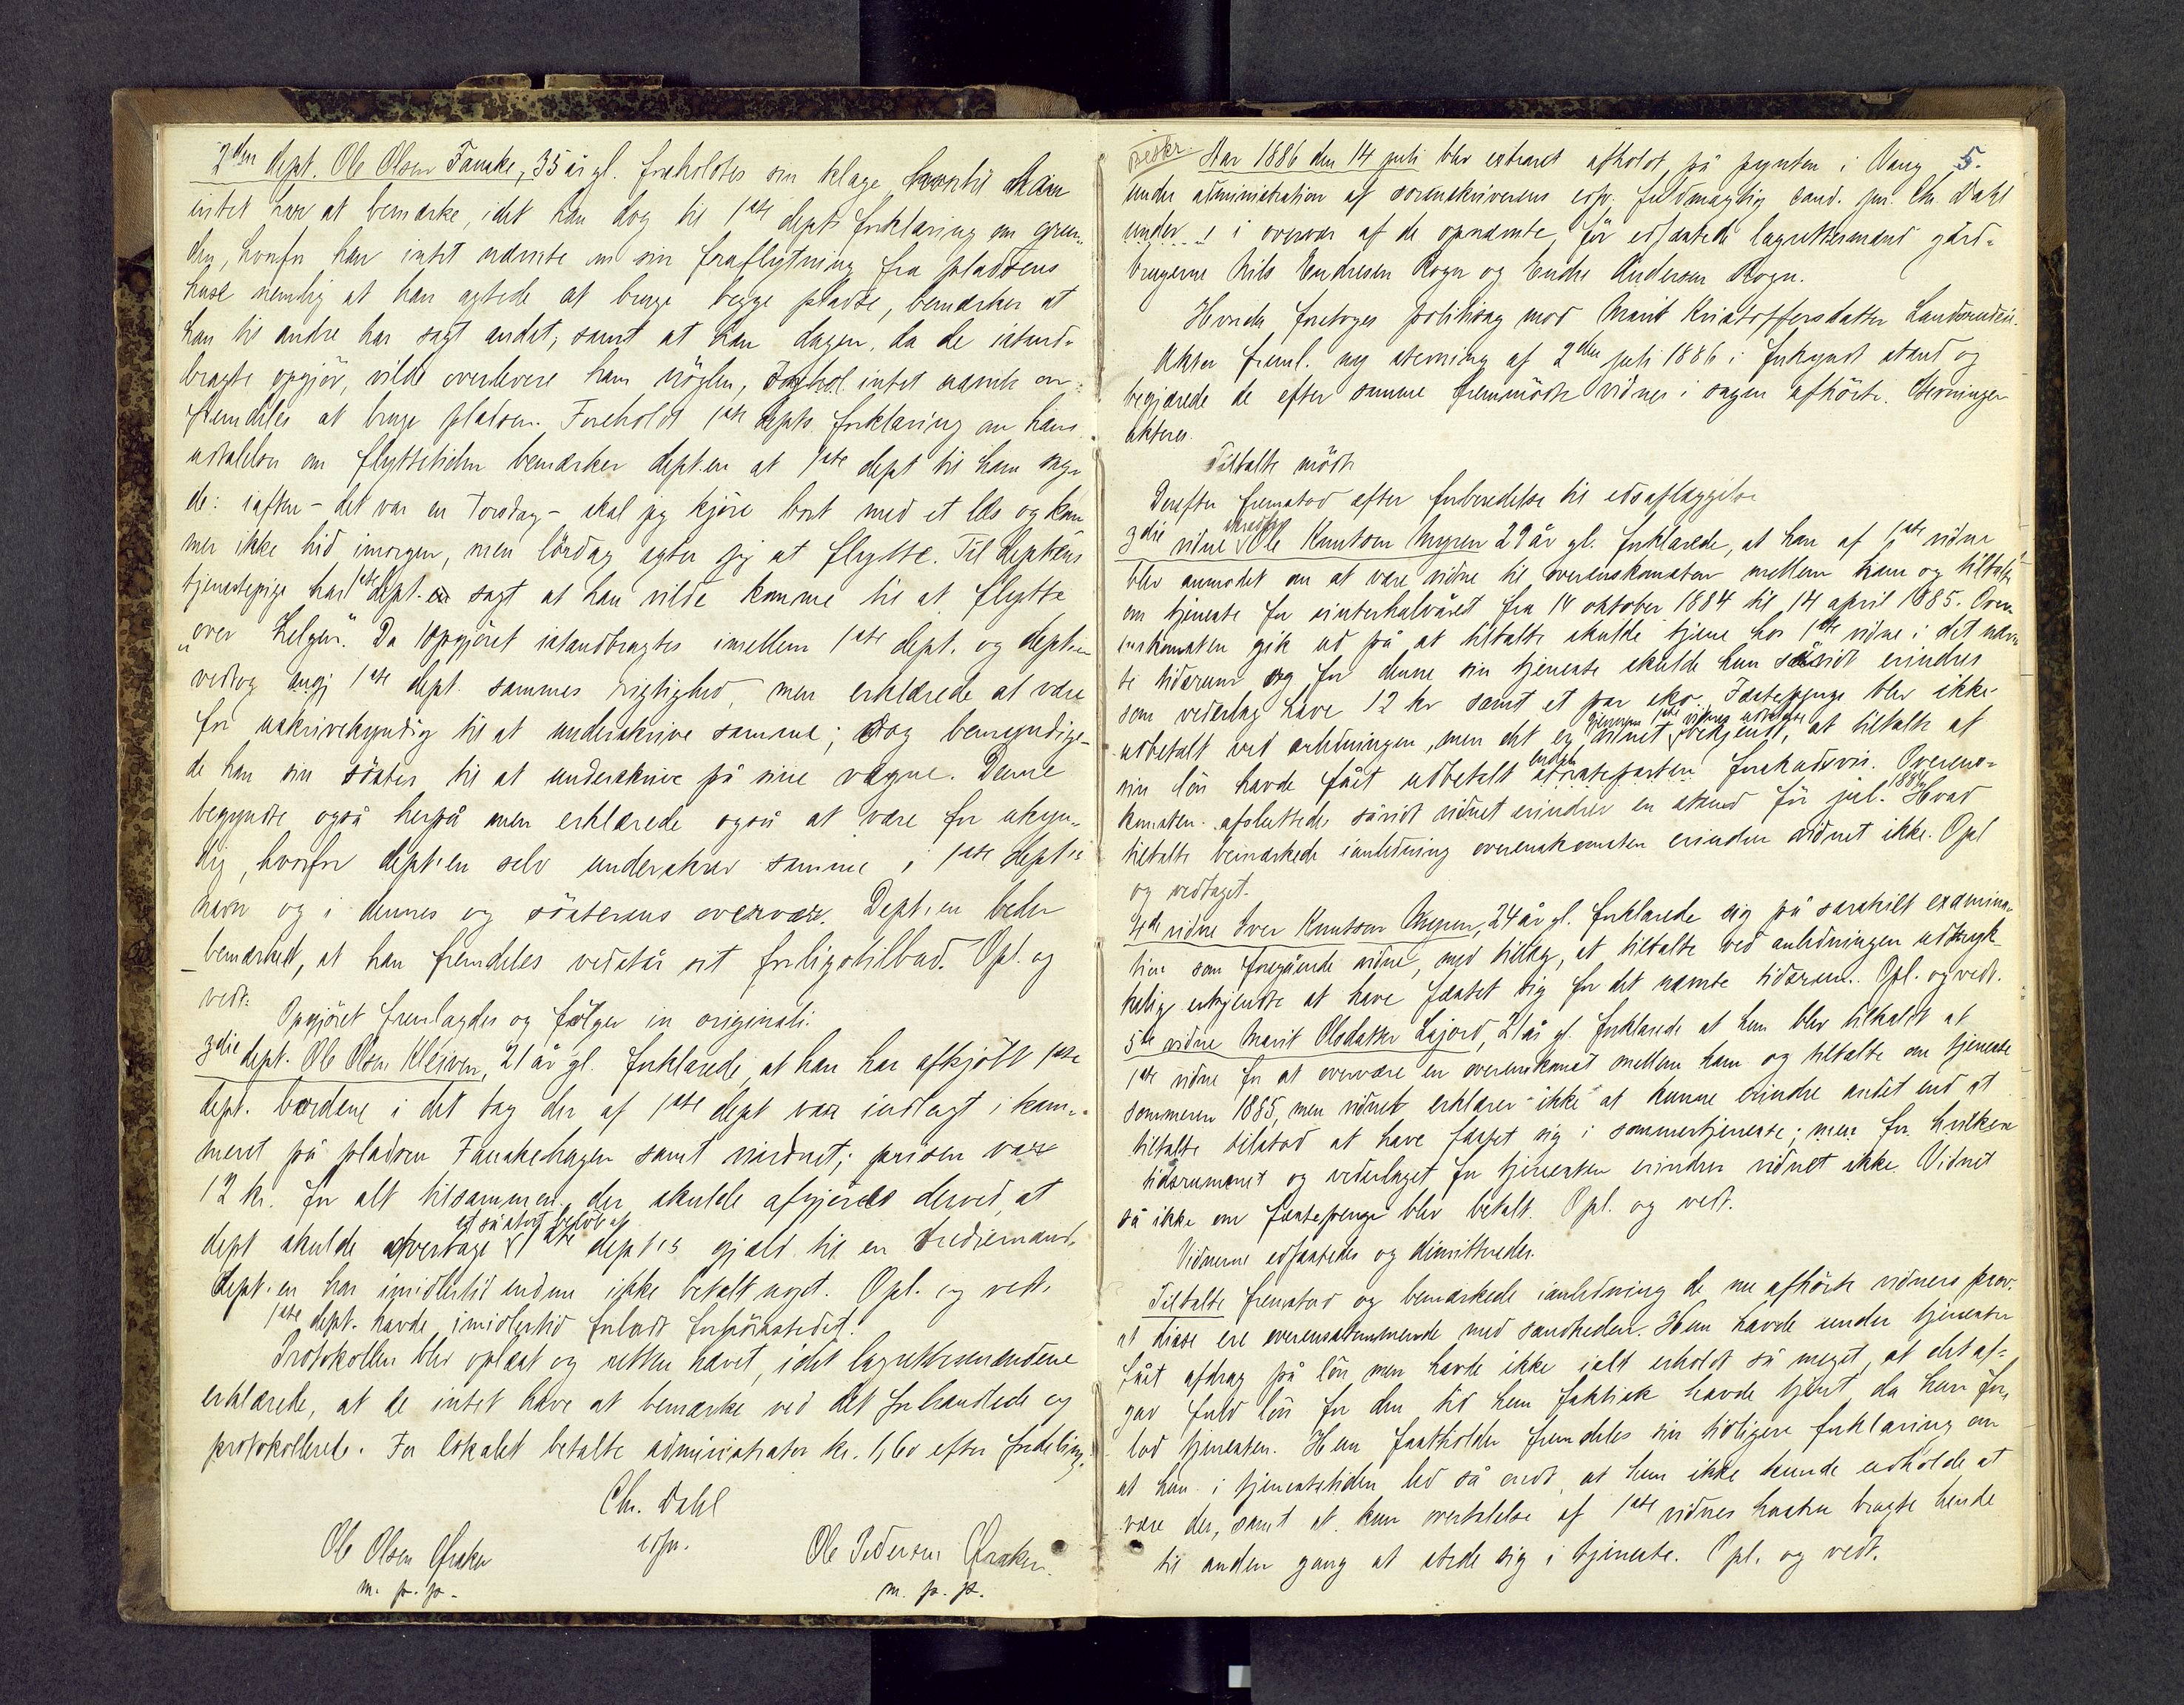 2den dept. Ole Olsen Fauske, 35 år gl. foreholdtes sin klage, hvortil han
intet har at bemærke, idet han dog til 1ste depts forklaring om grun-
den, hvorfor han intet nævnte om sin fraflytning fra pladsens
huse nemlig at han agtede at bruge begge pladse, bemærker at
han til andre har sagt andet, samt at han dagen, da de istand-
bragte opgjör, vilde overlevere ham nöglen, intet nævnte om
fremdeles at bruge pladsen. Foreholdt 1ste depts forklaring om hans
udtalelser om flyttetiden bemærker dept.en at 1ste dept til ham sag-
de: iaften - det var en Torsdag - skal jeg kjöre bort med et læs og kom
mer ikke hid imorgen, men lördag agter jeg at flytte. Til dept.ens
tjenestepige har 1ste dept. sagt at han vilde komme til at flytte
"over helgen". Da opgjöret istandbragtes imellem 1ste dept. og dept.en
vedtog 1ste dept. sammes rigtighed, men erklærede at være
for uskrivekyndig til at underskrive samme; dog bemyndige-
de han sin söster til at underskrive på sine vegne. Denne
begyndte også herpå men erklærede også at være for ukyn-
dig, hvorfor dept.en selv underskrev samme i 1ste dept.s
navn og i dennes og sösterens overvær. Dept.en beder
bemærket, at han fremdeles vedstår sit forligstilbud. Opl. og
vedt.
Opgjöret fremlagdes og fölger in originali.
3die dept. Ole Olsen Kleiven, 21 år gl. forklarede, at han har afkjöbt 1ste
dept. bordene i det tag der af 1ste dept var indlagt i kam-
meret på pladsen Fauskehagen samt vinduet; prisen var
12 kr. for alt tilsammen, der skulde afgjöres derved, at
dept skulde overtage et så stort belöb af 1ste dept.s gjæld til en trediemand.
Dept.en har imidlertid endnu ikke betalt noget. Opl. og vedt.
1ste dept. havde imidlertid forladt forhörsstedet.
Protokollen blev oplæst og retten hævet, idet lagrettesmændene
erklærede, at de intet have at bemærke ved det forhandlede og
protokollerede. For lokalet betalte administrator kr. 1,60 efter fordeling.
Chr. Dahl
edsv.
Ole Olsen Öraker
m. p. p.
Ole Pedersen Öraker
m. p. p.
beskr. Aar 1886 den 14 juli blev extraret afholdt på pynten i Vang 5.
under administration af sorenskriverens edsv. fuldmægtig cand. jur. Chr. Dahl
under i overvær af de opnævnte, för edfæstede lagrettesmænd gård-
brugerne Nils Endresen Rogn og Endre Andersen Rogn.
Hvorda foretoges politisag mod Marit Kristoffersdatter
Aktor freml. ny stevning af 2den juli 1886 i forkyndt stand og
begjærede de efter samme fremmödte vidner i sagen afhörte. Stevningen
akteres.
Tiltalte mödte
Derefter fremstod efter forberedelse til edsaflæggelse
3die vidne Ole Knutsen Myren 29 år gl. forklarede, at han af 1ste vidne
blev anmodet om at være vidne til overenskomsten mellem ham og tiltalte
om tjeneste for vinterhalvåret fra 14 oktober 1884 til 14 april 1885. Over-
enskomsten gik ud på at tiltalte skulde tjene hos 1ste vidne i det nævn-
te tidsrum og for denne sin tjeneste skulde hun såvidt erindres
som vederlag have 12 kr samt et par sko. Fæstepenge blev ikke
udbetalt ved anledningen, men det er vidnet gjennem 1ste vidnes udtalelse bekjendt, at tiltalte af
sin lön havde fået udbetalt endel forskudsvis. Overens-
komsten afsluttedes såvidt vidnet erindrer en stund för jul 1884. Hvad
tiltalte bemærkede i anledning overenskomsten erindrer vidnet ikke. Opl
og vedtaget.
4de vidne Iver Knutsen Myren, 24 år gl. forklarede sig på særskilt examina-
tion som foregående vidne, med tillæg, at tiltalte ved anledningen udtryk-
kelig erkjendte at have fæstet sig for det nævnte tidsrum. Opl. og vedt.
5te vidne Marit Olsdatter Lajord, 21 år gl. forklarede at hun blev tilkaldt af
1ste vidne for at overvære en overenskomst mellem ham og tiltalte om tjeneste
sommeren 1885, men vidnet erklærer ikke at kunne erindre andet end at
tiltalte tilstod at have fæstet sig i sommertjeneste; men for hvilken
tidsrummet og vederlaget for tjenesten erindrer vidnet ikke. Vidnet
så ikke om fæstepenge blev betalt. Opl. og vedt.
Vidnerne edfæstedes og dimitteredes.
Tiltalte fremstod og bemærkede i anledning de nu afhörte vidners prov.
at disse ere overensstemmende med sandheden. Hun havde under tjenesten
fåt afdrag på lön men havde ikke ialt erholdt så meget, at det af-
gav fuld lön for den tid hun faktisk havde tjent, da hun for-
lod tjenesten. Hun fastholder fremdeles sin tidligere forklaring om
at hun i tjenestetiden led så ondt, at hun ikke kunde udholde at
være der, samt at kun overtalelse af 1ste vidnes hustru bragte hende
til anden gang at stede sig i tjeneste. Opl. og vedt.